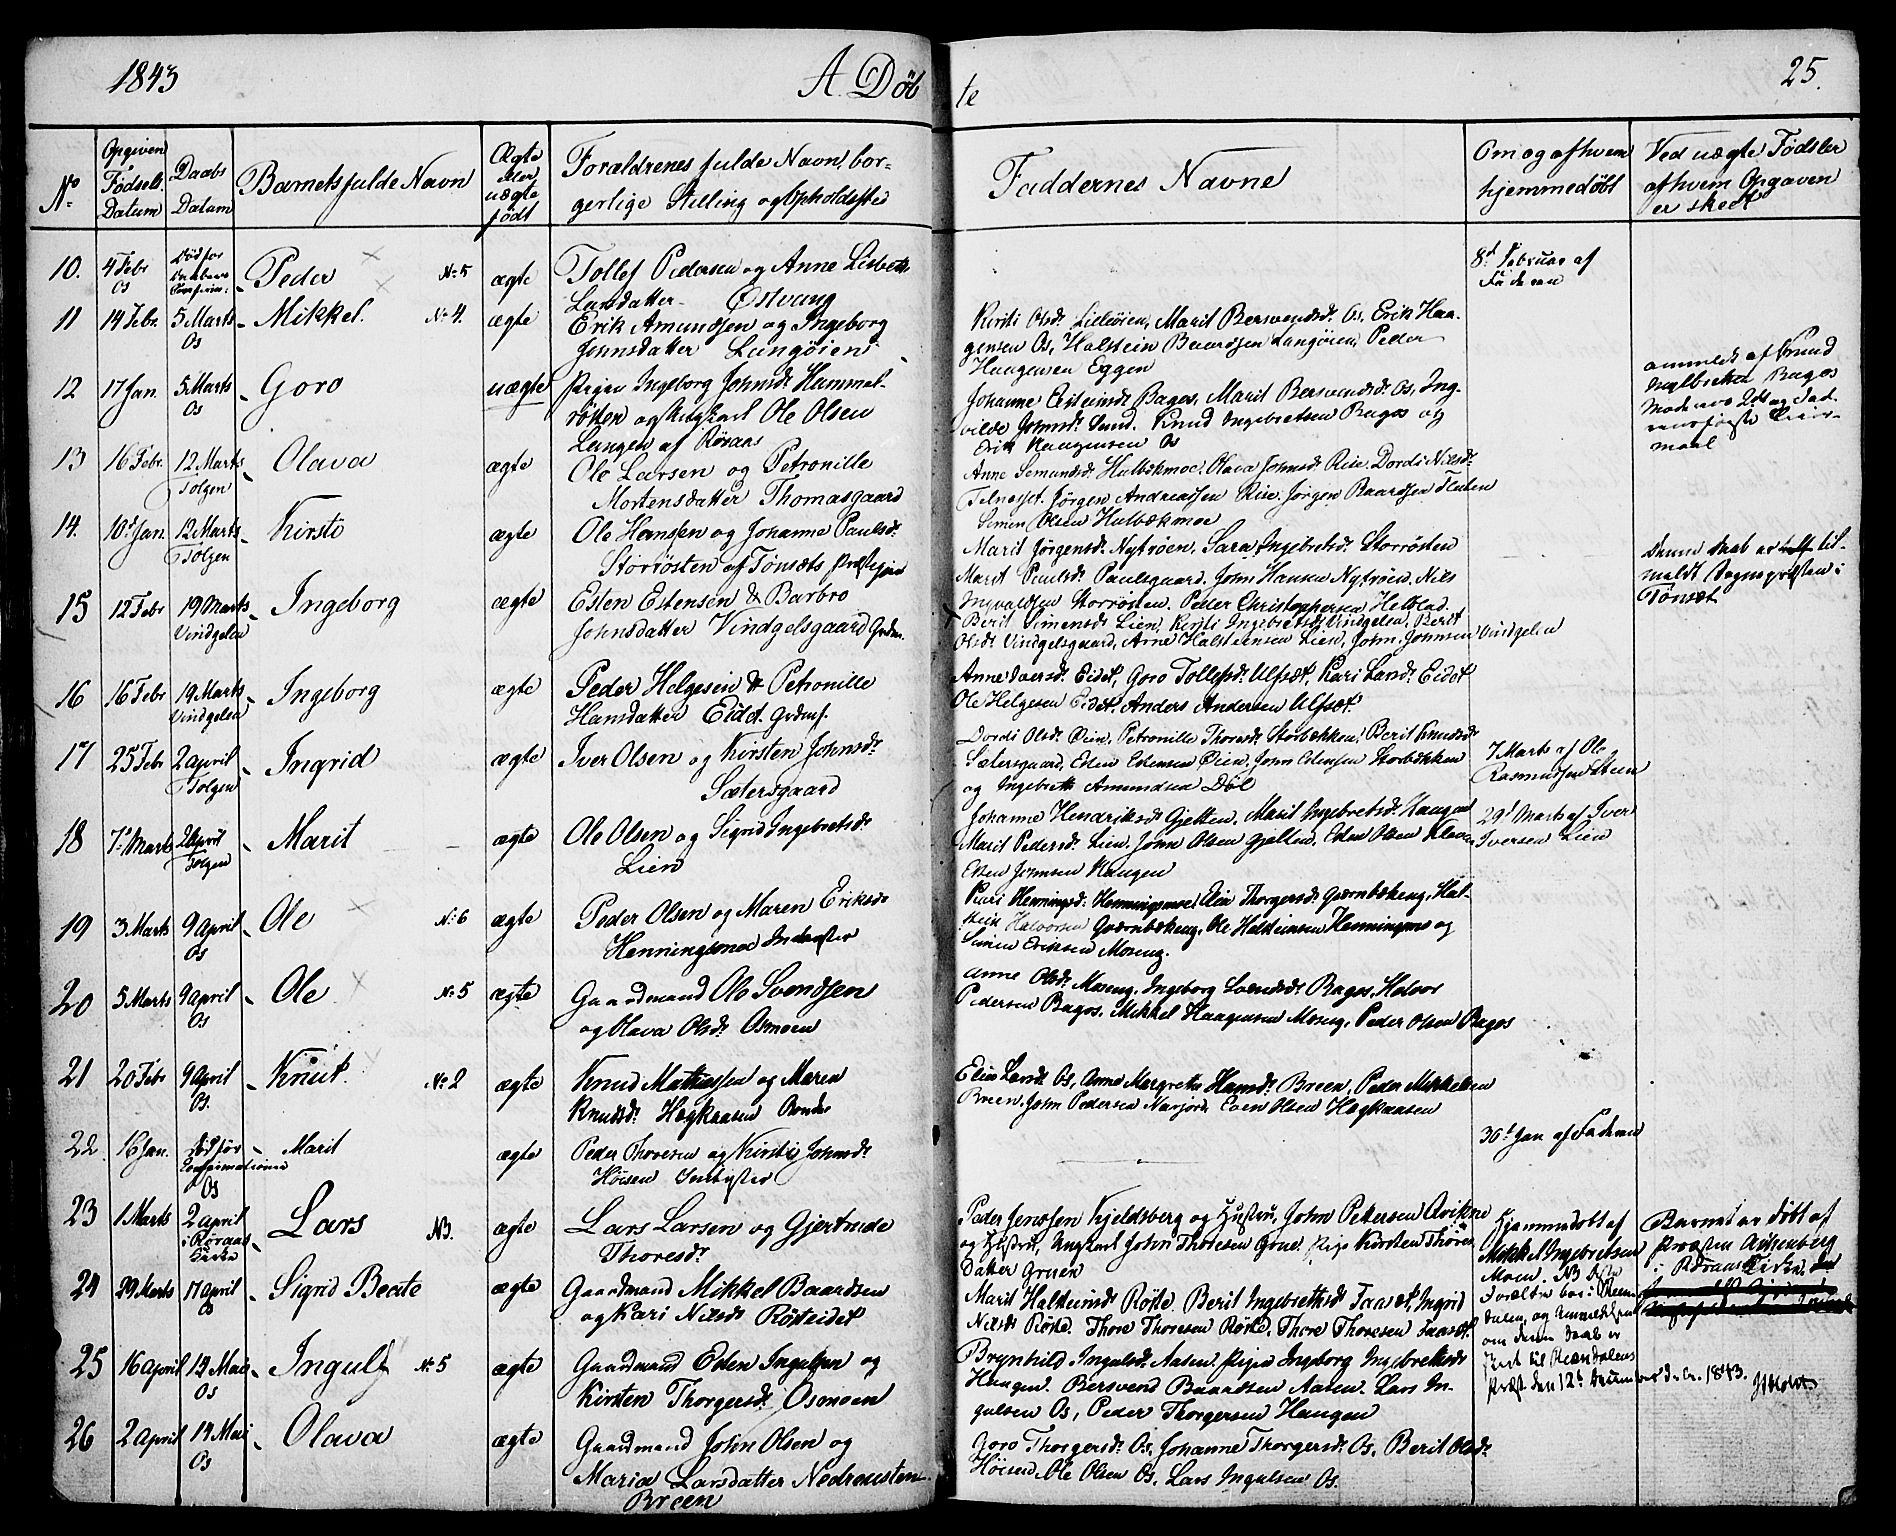 1843
A. Døb
te
25.
No
Opgiven Fødsels Datum
Daabs Datum
Barnets fulde Navn
Ægte eller uægte født
Forældrenes fulde Navn, bor-
gerlige Stilling og Opholdssted
Faddernes Navne
Om og af hvem
hjemmedøbt
Ved uægte Fødsler
af hvem Opgaven
er skeet
10. 4 Febr Os Peder No 5 ægte Tollef Pedersen og Anne Lisbeth
Larsdatter Østvang
8d Februar af
Faderen
11 14 Febr. 5 Marts Os Mikkel. No 4. ægte Erik Amundsen og Ingeborg
Jonsdatter Langøien
Kirsti Olsdr Lilleøien, Marit Bersvendsdr Os, Erik Haa-
gensen Os, Halstein Baardsen Langøien, Peder
Haagensen Eggen
12 17 Jan. 5 Marts Os Goro uægte Pigen Ingeborg Johnsdr Hummel-
røsten og Ungkarl Ole Olsen
Langen af Røraas
Johanne Estensdr Bagos, Marit Bersvendsdr Os, Ing-
vilde Johnsdr Sund. Knud Ingebretsen Bagos og
Erik Haagensen Os
anmeldt af Knud
Ingebretsen Bagos
Moderens 2det og Fad-
erens første Leier-
maal
13 16 Febr. 12 Marts Tolgen Olava ægte Ole Larsen og Petronille
Mortensdatter Thomasgaard
Anne Semundsdr Hulbækmoe, Olava Johnsdr Rise, Dordi Nilsdr
Telnesset. Jørgen Andreassen Rise, Jørgen Baardsen Fluten
Simen Olsen Hulbækmoe
14. 10d Jan. 12 Marts Tolgen Kirsti ægte Ole Hansen og Johanne Paulsdr
Storrøsten af Tønsæts Præstegjeld
Marit Jørgensdr Nytrøen, Sara Ingebretsdr Storrøsten
Marit Paulsdr Paulsgaard, John Hansen Nytrøen, Nils
Ingvaldsen Storrøsten, Peder Christophersen Helstad
Denne Daab er til-
meldt Sognepræsten i
Tønset
15 12 Febr 19 Marts Vindgelen Ingeborg ægte Esten Estensen & Barbro
Johnsdatter Vindgelsgaard Grdm.
Berit Simensdr Lien, Kirsti Ingebretsdr Vindgelen, Berit
Olsdr Vindgelsgaard, Arne Halstensen Lien, John Johnsen Vindgelen
16 16 Febr 19 Marts Vindgelen Ingeborg ægte Peder Helgesen & Petronille
Hansdatter Eidet. Grdmf.
Anne Iversdr Eidet, Goro Tollefsdr Ulfset, Kari Larsdr Eidet
Ole Helgesen Eidet, Anders Andersen Ulfset
17 25 Febr 2 April Tolgen Ingrid ægte Iver Olsen og Kirsten Johnsdr
Sætersgaard
Dordi Olsdr Øien, Petronille Thoresdr Storbækken, Berit Knudsdr
Sætersgaard, Eden Edensen Øien, John Edensen Storbækken
og Ingebreth Amundsen Døl
7 Marts af Ole
Rasmussen Steen
18 7d Marts 2 April Tolgen Marit ægte Ole Olsen og Sigrid Ingebretsdr
Lien
Johanne Hendriksdr Gjelten, Marit Ingebretsdr Haugen
Marit Pedersdr Lien, John Olsen Gjelten, Eden Olsen Kleven
Esten Johnsen Haugen
29d Marts af Iver
Iversen Lien
19 3 Marts 9 April Os Ole No 6 ægte Peder Olsen og Maren Eriksdr
Henningsmoe Inderster
Kari Henningsdr Henningsmoe, Elin Thorgersdr Qværnbækeng, Hal-
stein Halvorsen Qværnbækeng, Ole Halsteinsen Henningsmo og
Simen Eriksen Moseng.
20 5 Marts 9 April Os Ole No 5 ægte Gaardmand Ole Svendsen
og Olava Olsdr Osmoen
Anne Olsdr Moseng, Ingeborg Svendsdr Bagos, Halvor
Pedersen Bagos, Mikkel Haagensen Moseng, Peder Olsen Bagos
21 20 Febr 9 April Os. Knut. No 2 ægte Knud Mathiassen og Maren
Knudsdr Høgkaasen Bonde
Elin Larsdr Os, Anne Margrete Hansdr Breen, Peder Mikkelsen
Breen, John Pedersen Narjord, Even Olsen Høgkaasen
22. 16 Jan. Død før Confirmationen Os Marit ægte Peder Thoresen og Kirsti Johnsdr
Høisen Indbyster
30d Jan af Faderen
23 1 Marts 2 April i Røraas Kirke Lars N3. ægte Lars Larsen og Gjertrude
Thoresdr
Peder Jenssen Kjeldsberg og Hustru, John Petersen Qvikne
og Hustru, Ungkarl John Thoresen Grue, Pige Kirsten Thores
Datter Gruen
Hjemmedøbt af
Mikkel Ingebretsen
Moen. NB Disse
Forældre boe i Reen-
dalen, og Anmeldelsen
om denne Daab er
sendt til Reendalens
Præst den 12te December d. A. 1843.
Barnet er døbt af
Præsten Aschenberg
i Røraas Kirke
24 29 Marts 17 April Os Sigrid Beate ægte Gaardmand Mikkel Baardsen
og Kari Nilsdr Røsteidet
Marit Halsteinsdr Røste, Berit Ingebrethsdr Faaset, Ingrid
Nilsdr Røste. Thore Thoresen Røste, Thore Thoresen Faaset
25 16 April 12 Mai Os Ingulf No 5 ægte Gaardmand Eden Ingulfsen og
Kirsten Thorgersdr Osmoen
Brynhild Ingulsdr Aasen, Pigen Ingeborg Ingebretsdr
Haugen. Bersvend Baardsen Aasen, Lars In-
gulsen Os, Peder Thorgersen Haugen
26 2 April 14 Mai Os Olava ægte Gaardmand John Olsen og
Maria Larsdatter Nedreusten
Breen
Goro Thorgersdr Os, Johanne Thorgersdr Os, Berit Olsdr
Høisen, Ole Olsen Os, Lars Ingulsen Os.